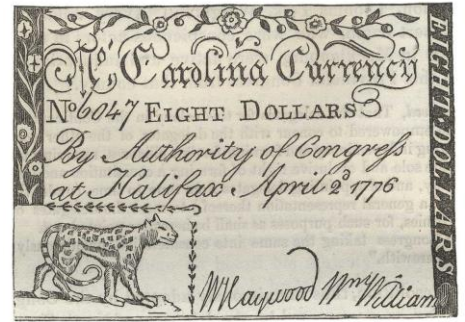 No. Carolina Currency
No 6047 EIGHT DOLLARS
By Authority of Congress
at Halifax April 2d. 1776
WHaywood Wm Williams
EIGHT·DOLLARS